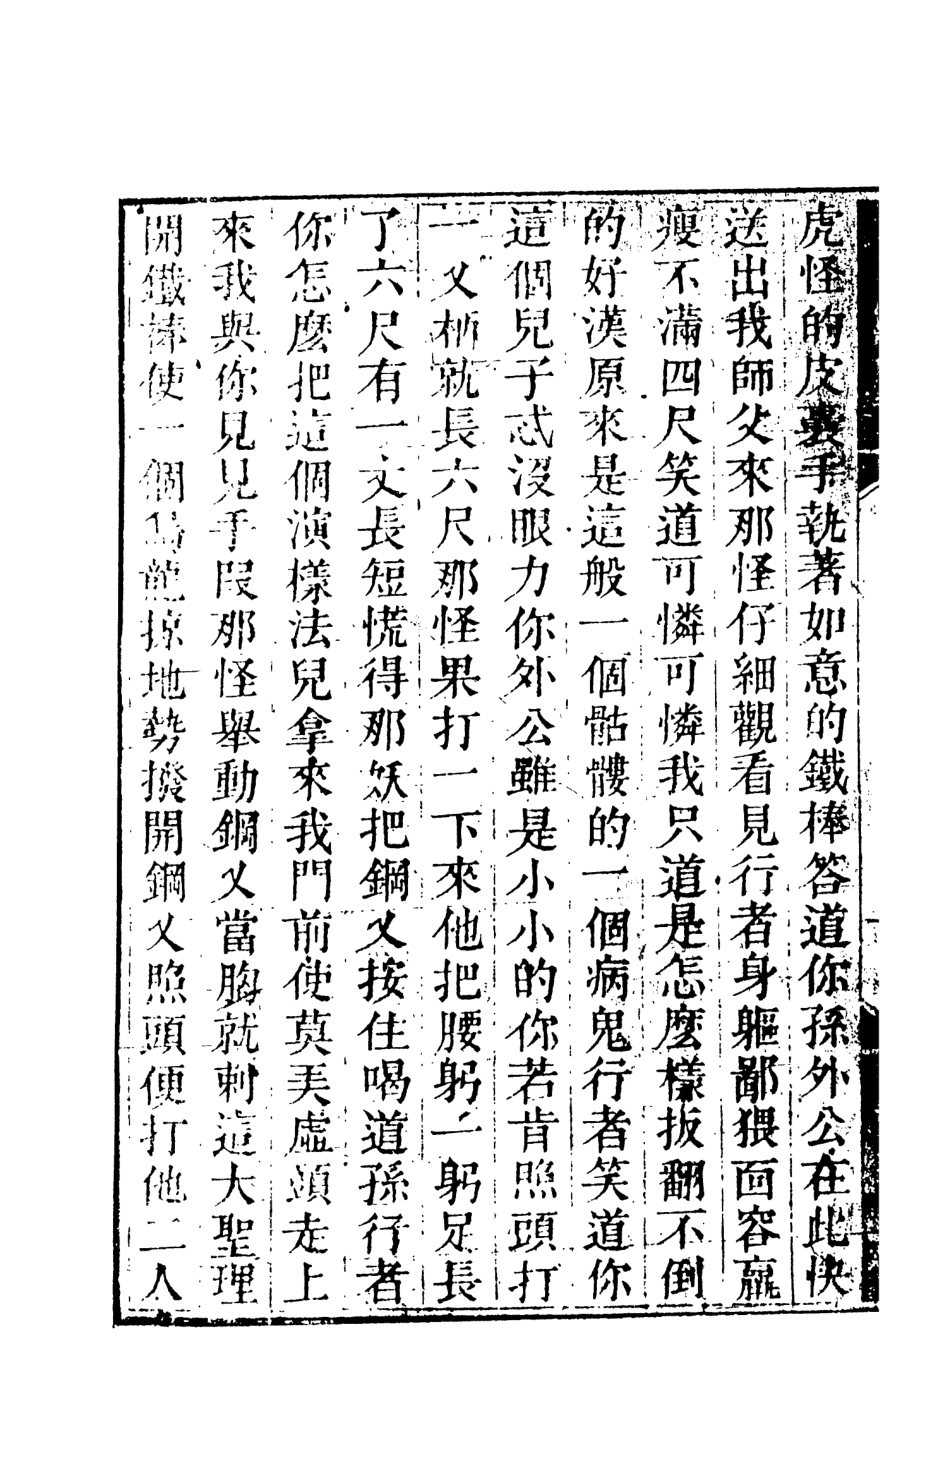 虎怪的皮裏手執著如意的鐵棒答道你孫外公在此快
送出我師父來那怪仔細觀看見行者身軀鄙猥面容羸
瘦不滿四尺笑道可憐可憐我只道是怎麼樣扳翻不倒
的好漢原來是這般一個骷髏的一個病鬼行者笑道你
這個兒子忒沒眼力你外公雖是小小的你若肯照頭打
一叉柄就長六尺那怪果打一下來他把腰躬一躬足長
了六尺有一丈長短慌得那妖把鋼叉按住喝道孫行者
你怎麼把這個演樣法兒拿來我門前使莫弄虛頭走上
來我與你見見手段那怪舉動鋼叉當胸就刺這大聖理
開鐵棒使一個烏龍掠地勢撥開鋼叉照頭便打他二人